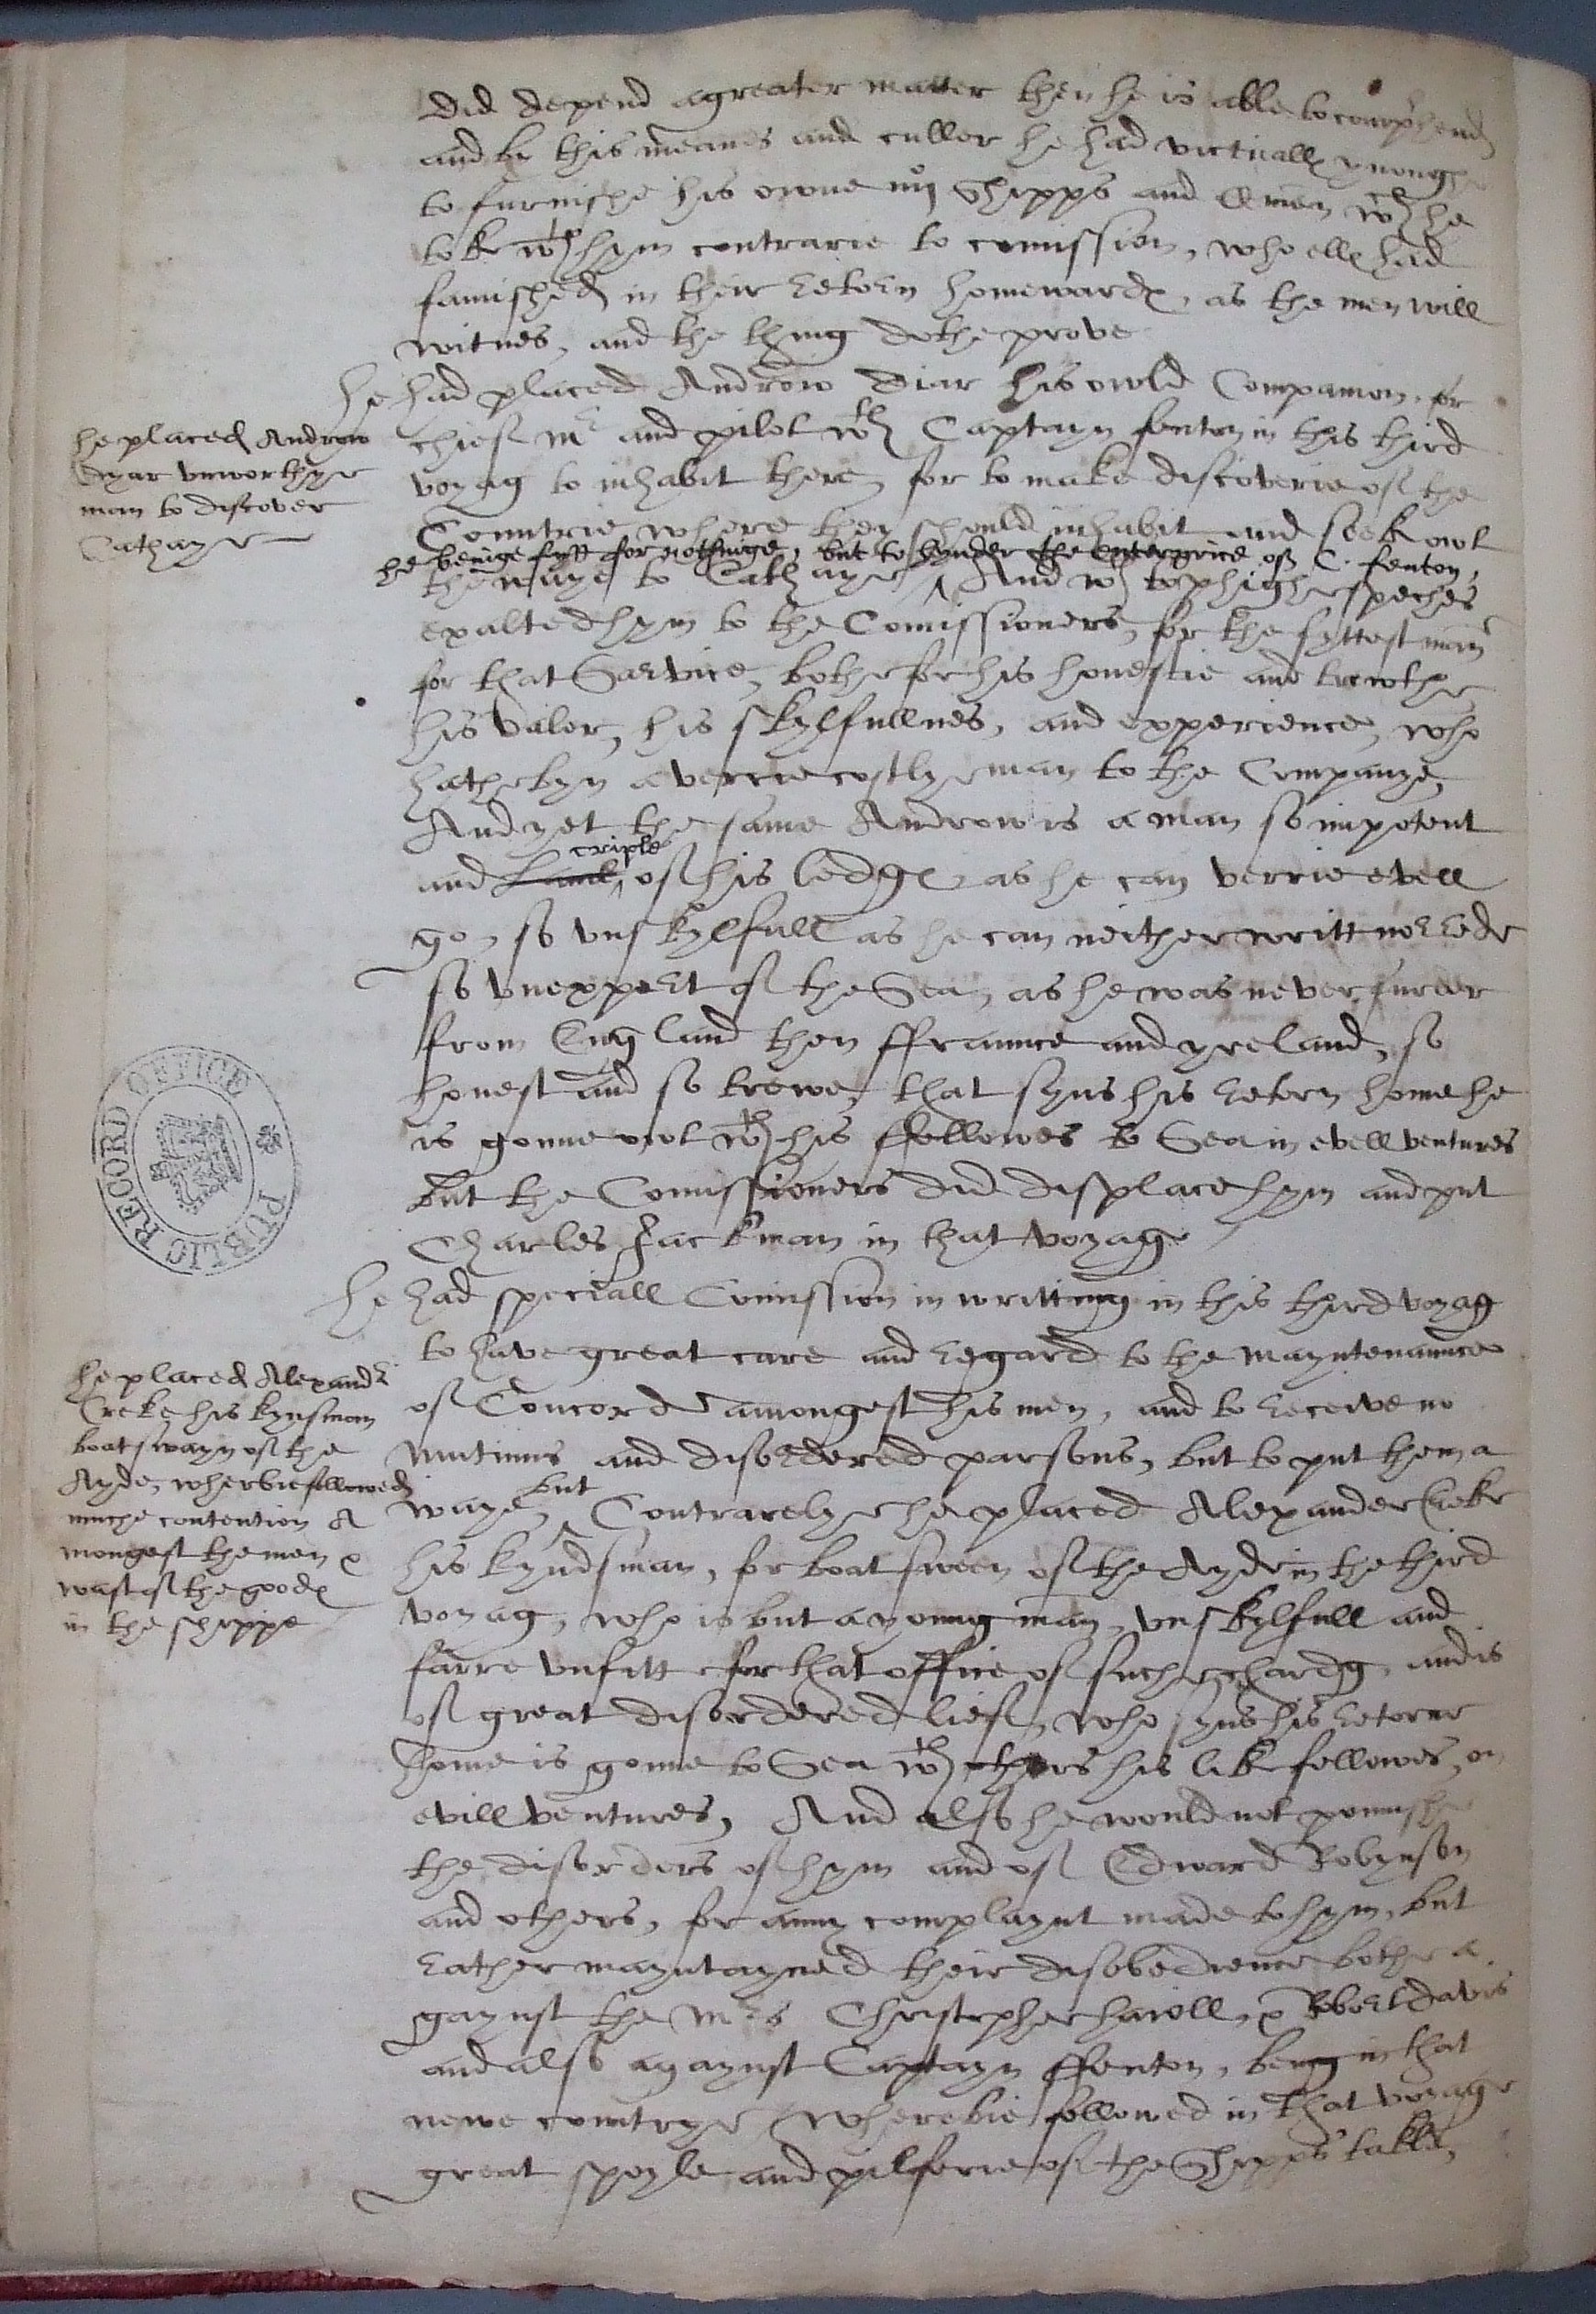 did depend a greater matter then he is able to comprehend
and by this meanes and culler he had victualls ynoughe
to furnishe his owne iiij shipps and C men wch he
tok wth hym contrarie to comission, who ells had
famished in their retorn homewards, as the men will
witnes, and the thing dothe prove
He had placed Andrew Diar his owld Companion, for
chief Mr and pilot wth Captayn fenton in this third
voyag to inhabit there, for to make discoverie of the
Countrie where they should inhabit and seek owt
he beinge fytt for nothinge, but to hynder the enterprice of C. fenton,
the waye to Cathaye ^ And wth tophighe speches
exalted hym to the Comissioners, for the fyttest man
for that Service, bothe for his honestie and trewthe
his valor, his skylfullnes, and experience, who
hathe byn a verrie costlye man to the Companye,
And yet the same Andrew is a man so impotent
criple
and Lame ^ of his ledgs as he can verrie evell
go, so unskylfull as he can neither writt nor rede
so unexpert of the Sea, as he was never furder
from England then Fraunce and yreland, so
honest and so trewe, that syns his retorn home he
is gonne owt wth his ffellowes to Sea in evell ventures
but the Comissioners did displace hym and put
Charles Jackman in that voyage
He had speciall Comission in writting in this third voyag
to have great care and regard to the mayntenannce
of Concord amongest his men, and to receive no
mutinus and disordered parsons, but to put them a
but
waye, ^ Contrarelye he placed Alexander Creke
his kyndsman, for boatswen of the Ayde in the third
voyag, who is but a yonng man, unskylfull and
farre unfitt for that office of suche chardg, and is
of great disordered lief, who syns his retorne
home is gonne to Sea wth others his lik fellowes, on
evill ventures, And also he would not punnishe
the disorders of hym and of Edward Robynson
and others, for anny complaynt made to hym, but
rather mayntayned their disobedience bothe a
gaynst the Mrs Christopher hawll, & Robert davis
and also agaynst Captayn ffenton, being in that
newe countrye / Wherebie followed in that voyage
great spoyle and pilferie of the Shipps takle,
he placed Andrew
dyar unworthye
man to discover
Cathaye
he placed Alexandr
Creke his kynsman
boatswayn of the
Ayde, wherbie followed
muche contention A
mongest the men &
wast of the goods
in the shippe
PUBLIC RECORD OFFICE